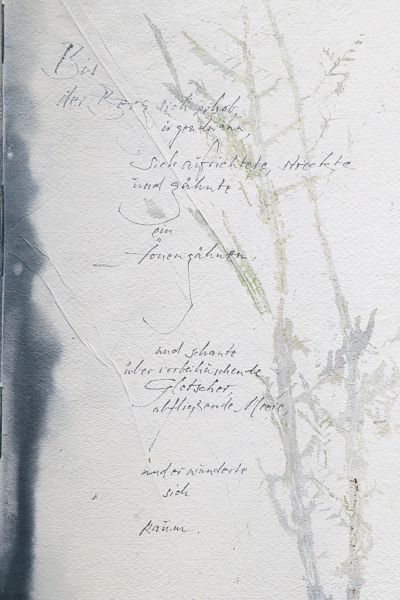 Bis
der Berg sich erhob,
irgendwann,
sich aufrichtete, streckte
und gähnte
ein
Äonengähnen,
und schaute
über vorbeihuschende
Gletscher,
abfließende Meere,
und er wunderte
sich
kaum.